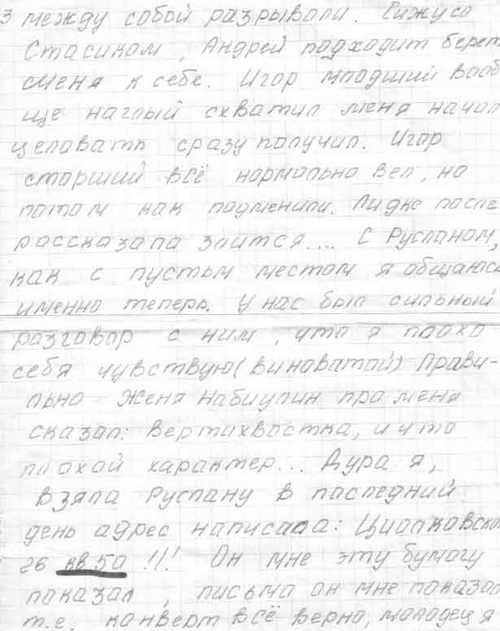 3 между собой разрывали. Сижу со
Стасиком, Андрей подходит берет
меня к себе. Игор младший вооб
ще наглый схватил меня начал
целовать сразу получил. Игор
старший всё нормально вел, но
потом как подменили. Лидке после
рассказала злится.... С Русланом,
как с пустым местом я общаюсь
именно теперь. У нас был сильный
разговор с ним, что я плохо
себя чувствую (виноватой) Прави-
льно Женя Набиулин про меня
сказал: вертихвостка, и что
плохой характер... Дура я,
взяла Руслану в последний
день адрес написала: Циолковского
26 кв 50 !!! Он мне эту бумагу
показал, письма он мне показал
т.е. конверт всё верно, молодец я